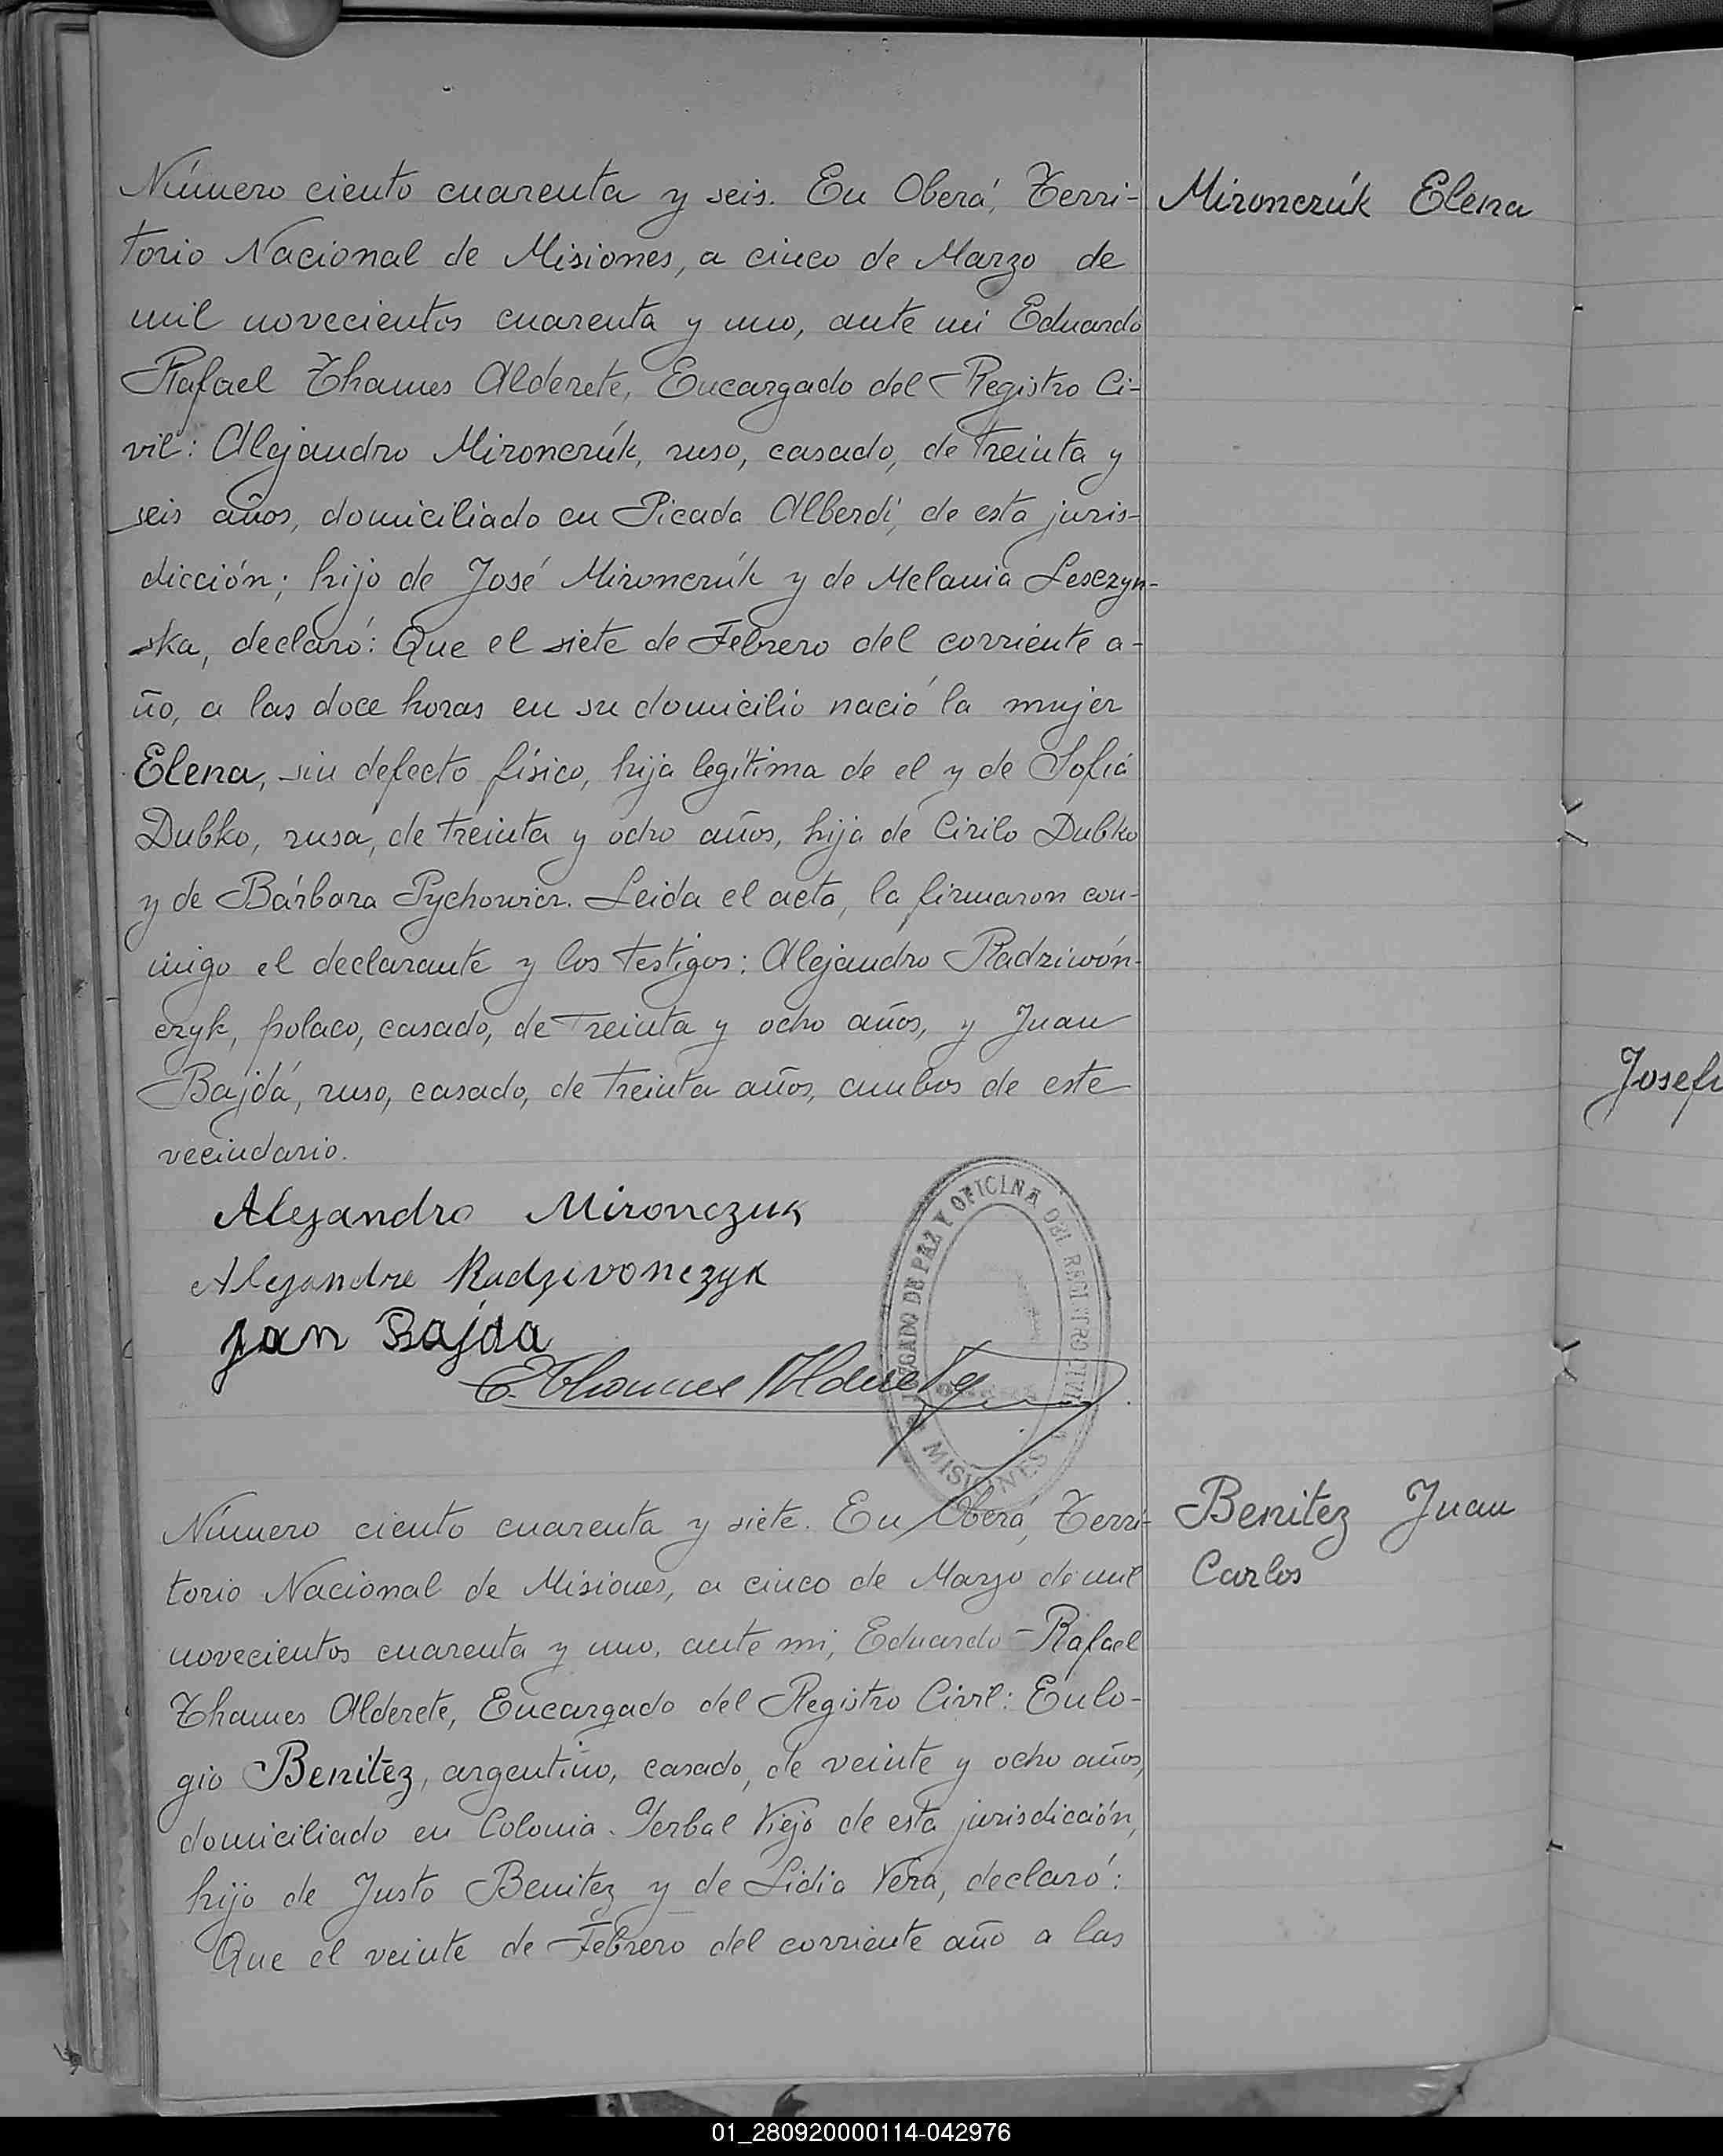 Número ciento cuarenta y seis. En Oberá, Terri-
torio Nacional de Misiones, a cinco de Marzo de
mil novecientos cuarenta y uno, ante mi Eduardo
Rafael Thames Alderete, Encargado del Registro Ci-
vil: Alejandro Mironczúk, ruso, casado, de treinta y
seis años, domiciliado en Picada Alberdi, de esta juris-
dicción; hijo de José Mironczúk y de Melania Lesczyn-
ska, declaró: Que el siete de Febrero del corriente a-
ño, a las doce horas en su domicilio nació la mujer
Elena, sin defecto físico, hija legítima de el y de Sofía
Dubko, rusa, de treinta y ocho años, hija de Cirilo Dubko
y de Bárbara Pychowicz. Leida el acta, la firmaron con-
migo el declarante y los testigos: Alejandro Radziwón-
czyk, polaco, casado, de treinta y ocho años, y Juan
Bajdá, ruso, casado, de treinta años, ambos de este
vecindario.
Mironczúk Elena
Alejandro Mironczuk
Alejandre Radzivonczyk
Jan Bajda
E. Thames Alderete
JUZGADO DE PAZ Y OFICINA DEL REGISTRO CIVIL
MISIONES
Número ciento cuarenta y siete. En Oberá, Terri-
torio Nacional de Misiones, a cinco de Marzo de mil
novecientos cuarenta y uno, ante mi, Eduardo Rafael
Thames Alderete, Encargado del Registro Civil: Eulo-
gio Benitez, argentino, casado, de veinte y ocho años,
domiciliado en Colonia Yerbal Viejo de esta jurisdicción,
hijo de Justo Benitez y de Lidia Vera, declaró:
Que el veinte de Febrero del corriente año a las
Benitez Juan
Carlos
Josefi
01_280920000114-042976